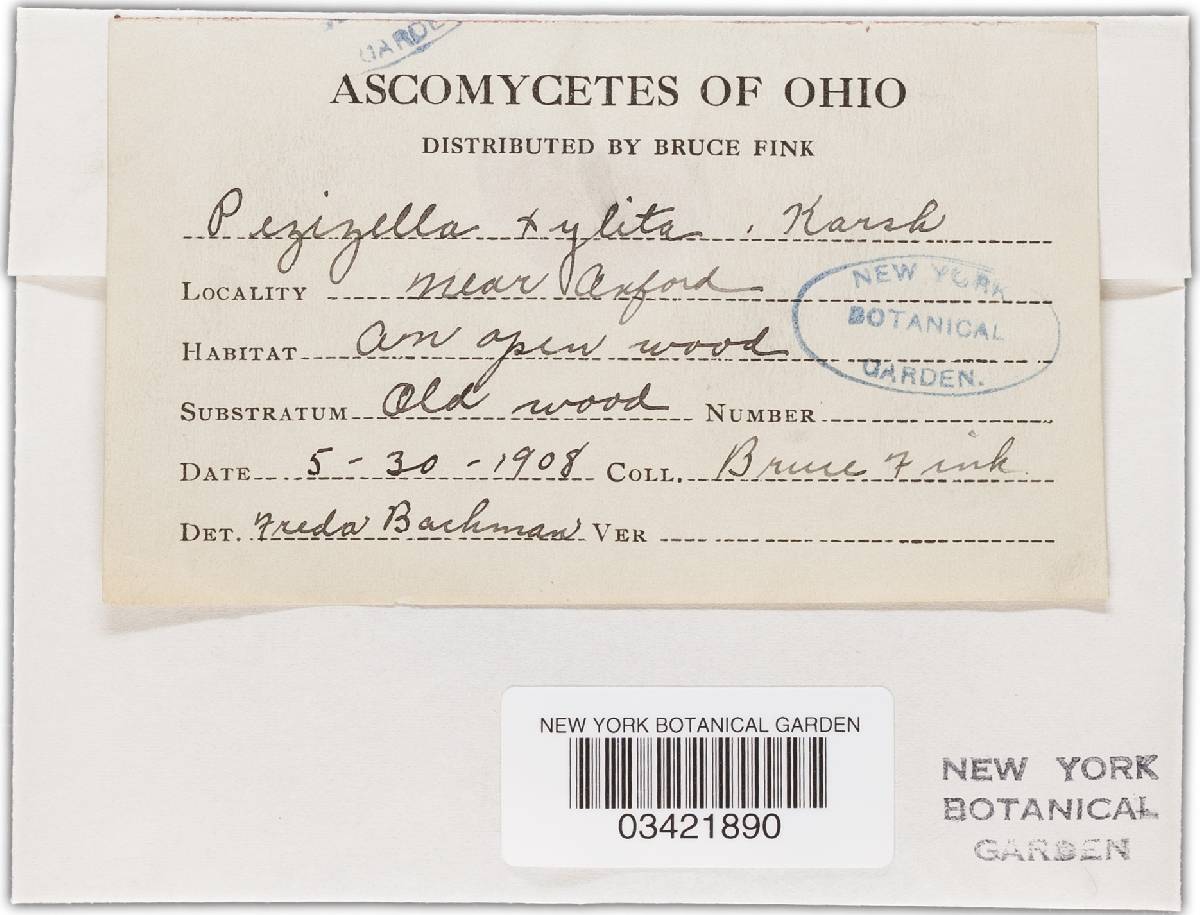 GARDE
ASCOMYCETES OF OHIO
DISTRIBUTED BY BRUCE FINK
Pezizella xylita . Karsh
LOCALITY near Oxford
HABITAT An open wood
SUBSTRATUM Old wood NUMBER
DATE 5-30-1908 COLL. Bruce Fink
DET. Freda Bachman VER
NEW YORK
BOTANICAL
GARDEN.
NEW YORK BOTANICAL GARDEN
03421890
NEW YORK
BOTANICAL
GARDEN